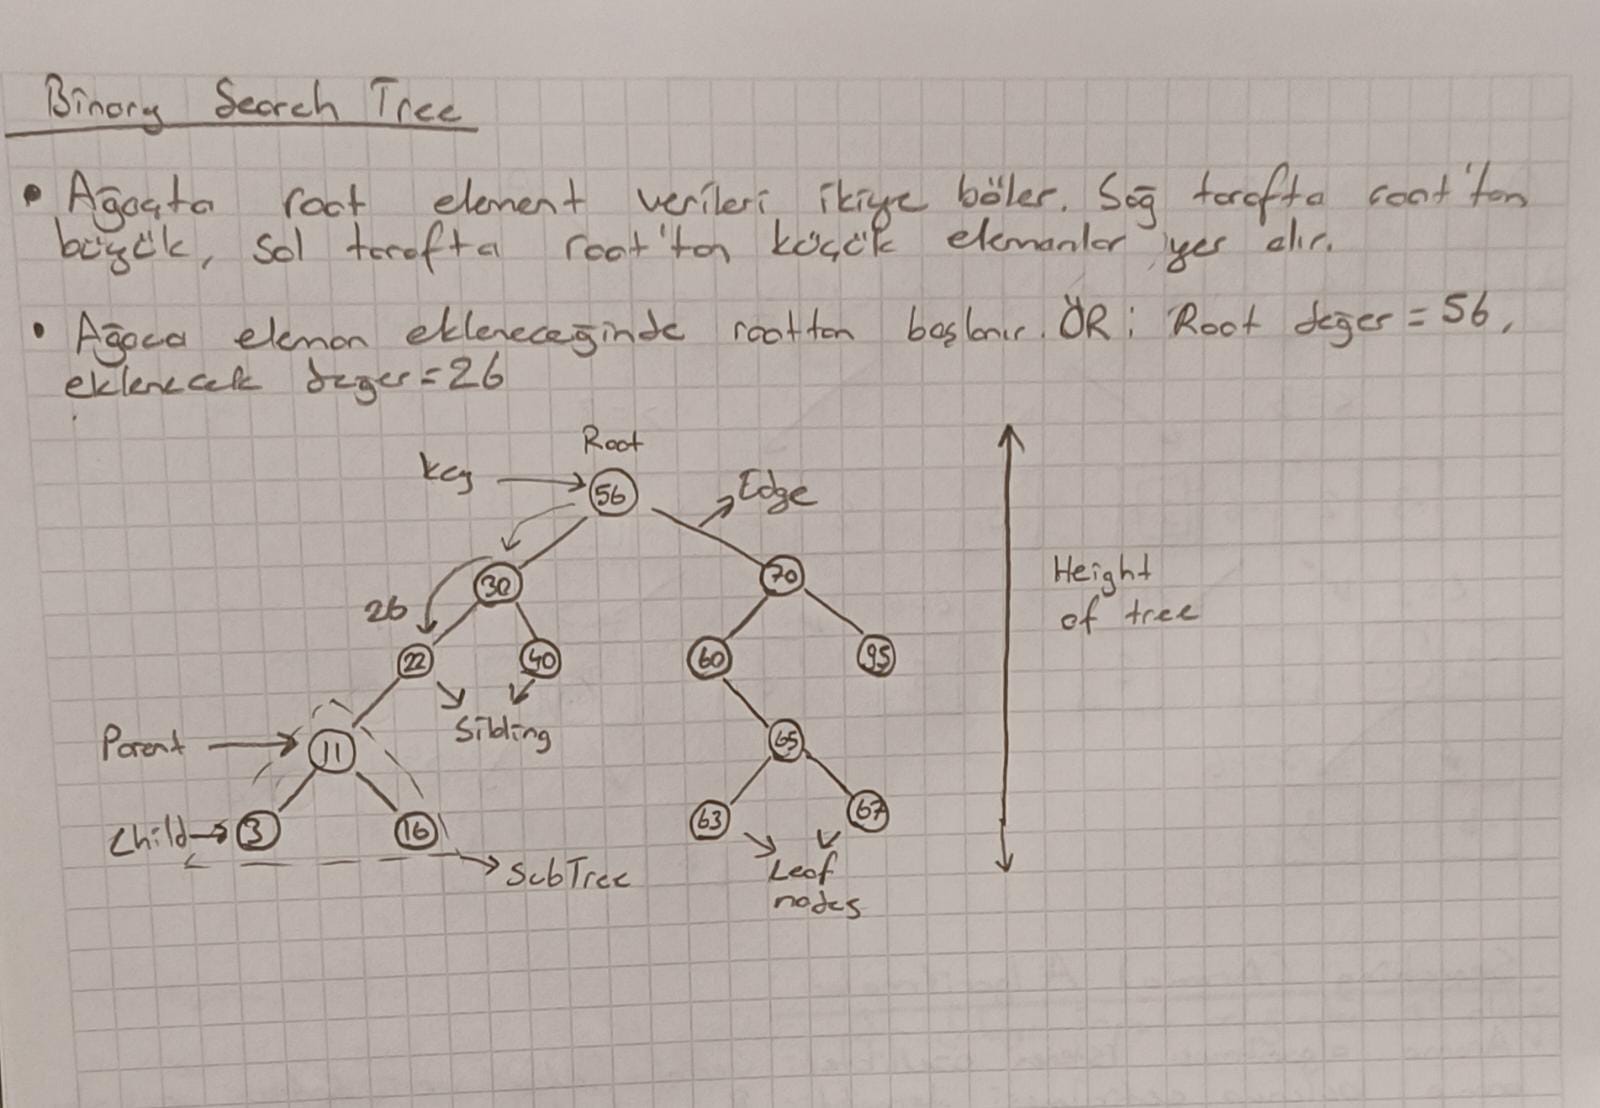 Binary Search Tree
• Ağaçta root element verileri ikiye böler. Sağ tarafta root'tan
büyük, sol tarafta root'tan küçük elemanlar yer alır.
• Ağaca eleman ekleneceğinde rootton başlanır. ÖR: Root değer = 56,
eklenecek değer = 26
Root
key
56
Edge
30
70
Height
of tree
26
22
40
60
95
Sibling
Parent
11
65
Child
3
16
63
67
SubTree
Leaf
nodes